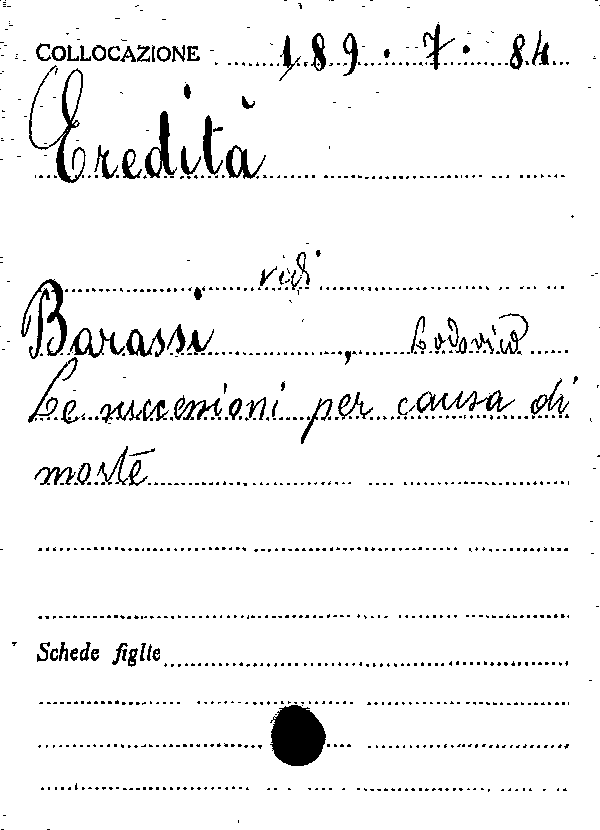 COLLOCAZIONE 189.7.84
Eredità
vedi
Barassi, Lodovico
Le successioni per causa di
morte
Schede figlie